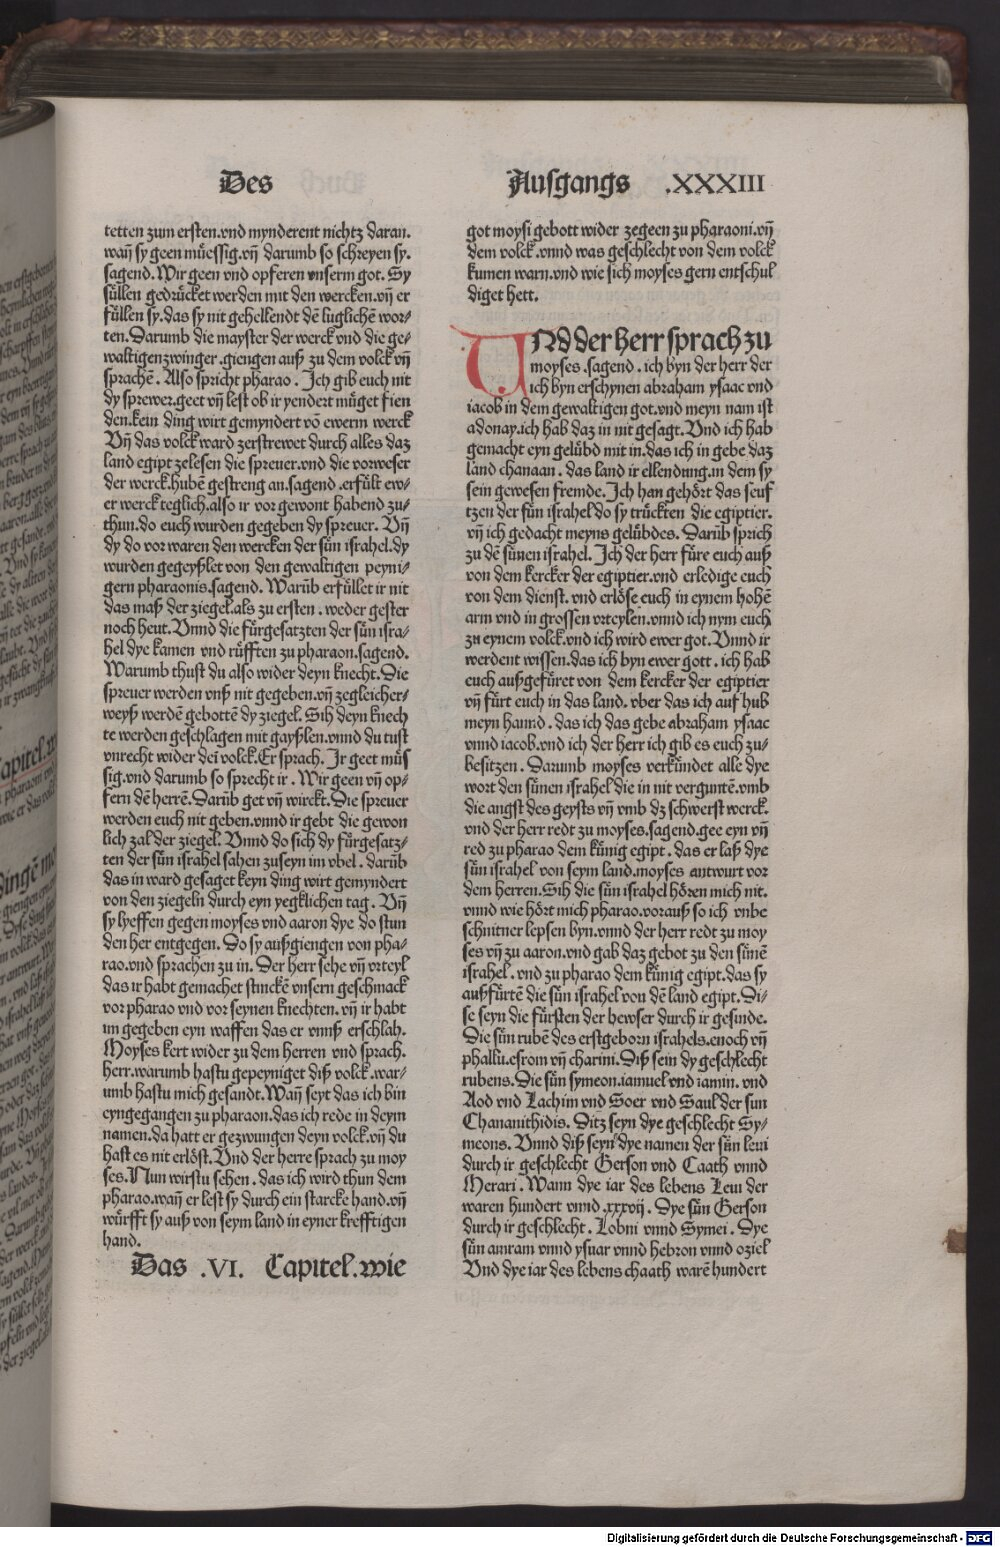 Des
Ausgangs .XXXIII
tetten zum ersten.vnd mynderent nichtz daran.
wañ sy geen müessig.vñ darumb so schreyen sy.
sagend.Wir geen vnd opferen vnserm got. Sy
süllen gedrücket werden mit den wercken.vñ er
füllen sy.das sy nit gehellendt dē luglichē wor-
ten.Darumb die mayster der werck vnd die ge-
waltigen zwinger.giengen auß zu dem volck vñ
sprachē. Also spricht pharao. Ich gib euch nit
dy sprewer.geet vñ lest ob ir yendert müget fien
den.kein ding wirt gemyndert vō ewerm werck
Vñ das volck ward zerstrewet durch alles daz
land egipt zelesen die spreuer.vnd die vorweser
der werck.hubē gestreng an.sagend.erfült ew-
er werck teglich.also ir vor gewont habend zu-
thun.do euch wurden gegeben dy spreuer. Vñ
dy do vor waren den wercken der sün israhel.dy
wurden gegeyßlet von den gewaltigen peyni-
gern pharaonis.sagend. Warūb erfüllet ir nit
das maß der ziegel.als zu ersten. weder gester
noch heut.Vnnd die fürgesatzten der sün isra-
hel dye kamen vnd rüfften zu pharaon.sagend.
Warumb thust du also wider deyn knecht.Die
spreuer werden vnß nit gegeben.vñ zegleicher-
weyß werdē gebottē dy ziegel. Sih deyn knech
te werden geschlagen mit gayßlen.vnnd du tust
vnrecht wider dein volck.Er sprach. Ir geet müs
sig.vnd darumb so sprecht ir. Wir geen vñ op-
fern dē herrē.Darūb get vñ wirckt.Die spreuer
werden euch nit geben.vnnd ir gebt die gewon
lich zal der ziegel. Vnnd do sich dy fürgesatz-
ten der sün israhel sahen zuseyn im vbel. darūb
das in ward gesaget keyn ding wirt gemyndert
von den ziegeln durch eyn yegklichen tag. Vñ
sy lyeffen gegen moyses vnd aaron dye do stun
den her entgegen. Do sy außgiengen von pha-
rao.vnd sprachen zu in. Der herr sehe vñ vrteyl
das ir habt gemachet stinckē vnsern geschmack
vor pharao vnd vor seynen knechten.vñ ir habt
im gegeben eyn waffen das er vnnß erschlah.
Moyses kert wider zu dem herren vnd sprach.
herr.warumb hastu gepeyniget diß volck.war-
umb hastu mich gesandt.Wañ seyt das ich bin
eyngegangen zu pharaon.das ich rede in deym
namen.da hatt er gezwungen deyn volck.vñ du
hast es nit erlöst.Vnd der herre sprach zu moy
ses.Nun wirstu sehen. das ich wird thun dem
pharao.wañ er lest sy durch ein starcke hand.vñ
würfft sy auß von seym land in eyner krefftigen
hand.
Das .VI. Capitel.wie
got moysi gebott wider zegeen zu pharaoni.vñ
dem volck.vnnd was geschlecht von dem volck
kumen warn.vnd wie sich moyses gern entschul
diget hett.
VNd der herr sprach zu
moyses.sagend.ich byn der herr der
ich byn erschynen abraham ysaac vnd
iacob in dem gewaltigen got.vnd meyn nam ist
adonay.ich hab daz in nit gesagt.Vnd ich hab
gemacht eyn gelübd mit in.das ich in gebe daz
land chanaan. das land ir ellendung.in dem sy
sein gewesen fremde.Ich han gehört das seuf
tzen der sün israhel do sy trückten die egiptier.
vñ ich gedacht meyns gelübdes. Darūb sprich
zu dē sünen israhel. Ich der herr füre euch auß
von dem kercker der egiptier.vnd erledige euch
von dem dienst.vnd erlöse euch in eynem hohē
arm vnd in grossen vrteylen.vnnd ich nym euch
zu eynem volck.vnd ich wird ewer got. Vnnd ir
werdent wissen.das ich byn ewer gott. ich hab
euch außgefüret von dem kercker der egiptier
vñ fürt euch in das land. vber das ich auf hub
meyn hannd.das ich das gebe abraham ysaac
vnnd iacob.vnd ich der herr ich gib es euch zu-
besitzen. Darumb moyses verkündet alle dye
wort den sünen israhel die in nit verguntē.vmb
die angst des geysts vñ vmb dz schwerst werck.
vnd der herr redt zu moyses.sagend.gee eyn vñ
red zu pharao dem künig egipt.das er laß dye
sün israhel von seym land.moyses antwurt vor
dem herren.Sih die sün israhel hören mich nit.
vnnd wie hört mich pharao.vorauß so ich vnbe
schnitner lepsen byn.vnnd der herr redt zu moy
ses vñ zu aaron.vnd gab daz gebot zu den sünē
israhel.vnd zu pharao dem künig egipt.das sy
außfürtē die sün israhel von dē land egipt.Di-
se seyn die fürsten der hewser durch ir gesinde.
Die sün rubē des erstgeborn israhels.enoch vñ
phallu.esrom vñ charmi. Diß sein dy geschlecht
rubens.Die sün symeon.iamuel vnd iamin. vnd
Aod vnd Iachim vnd Soer vnd Saul der sun
Chananithidis. Ditz seyn dye geschlecht Sy-
meons. Vnnd diß seyn dye namen der sün leui
durch ir geschlecht Gerson vnd Caath vnnd
Merari. Wann dye iar des lebens Leui der
waren hundert vnnd.xxxvij. Dye sün Gerson
durch ir geschlecht. Lobni vnnd Symei. Dye
sün amram vnnd ysuar vnnd hebron vnnd oziel
Vnd dye iar des lebens chaath warē hundert
Digitalisierung gefördert durch die Deutsche Forschungsgemeinschaft - DFG